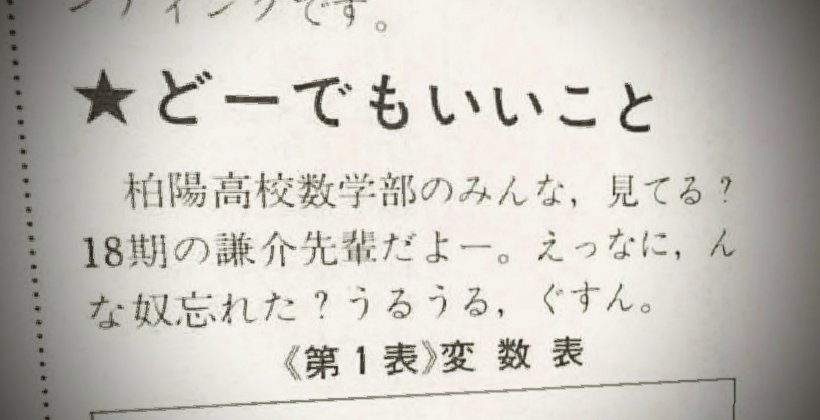 ンディングです。
★どーでもいいこと
柏陽高校数学部のみんな，見てる？
18期の謙介先輩だよー。えっなに，ん
な奴忘れた？うるうる，ぐすん。
《第１表》変数表